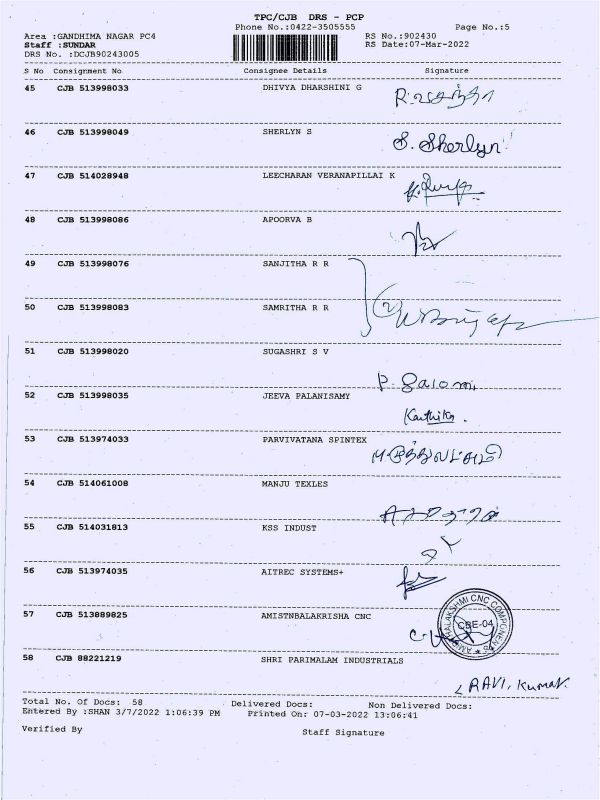 TPC/CJB DRS - PCP
Phone No.:0422-3505555 Page No.:5
Area :GANDHIMA NAGAR PC4 RS No.:902430
Staff :SUNDAR RS Date:07-Mar-2022
DRS No. :DCJB90243005
S No Consignment No Consignee Details Signature
45 CJB 513998033 DHIVYA DHARSHINI G
46 CJB 513998049 SHERLYN S
S. Sherlyn
47 CJB 514028948 LEECHARAN VERANAPILLAI K
48 CJB 513998086 APOORVA B
49 CJB 513998076 SANJITHA R R
50 CJB 513998083 SAMRITHA R R
51 CJB 513998020 SUGASHRI S V
52 CJB 513998035 JEEVA PALANISAMY
Karthika.
53 CJB 513974033 PARVIVATANA SPINTEX
54 CJB 514061008 MANJU TEXLES
55 CJB 514031813 KSS INDUST
56 CJB 513974035 AITREC SYSTEMS+
57 CJB 513889825 AMISTNBALAKRISHA CNC
CBE-04
58 CJB 88221219 SHRI PARIMALAM INDUSTRIALS
RAVI, Kumar.
Total No. Of Docs: 58 Delivered Docs: Non Delivered Docs:
Entered By :SHAN 3/7/2022 1:06:39 PM Printed On: 07-03-2022 13:06:41
Verified By Staff Signature